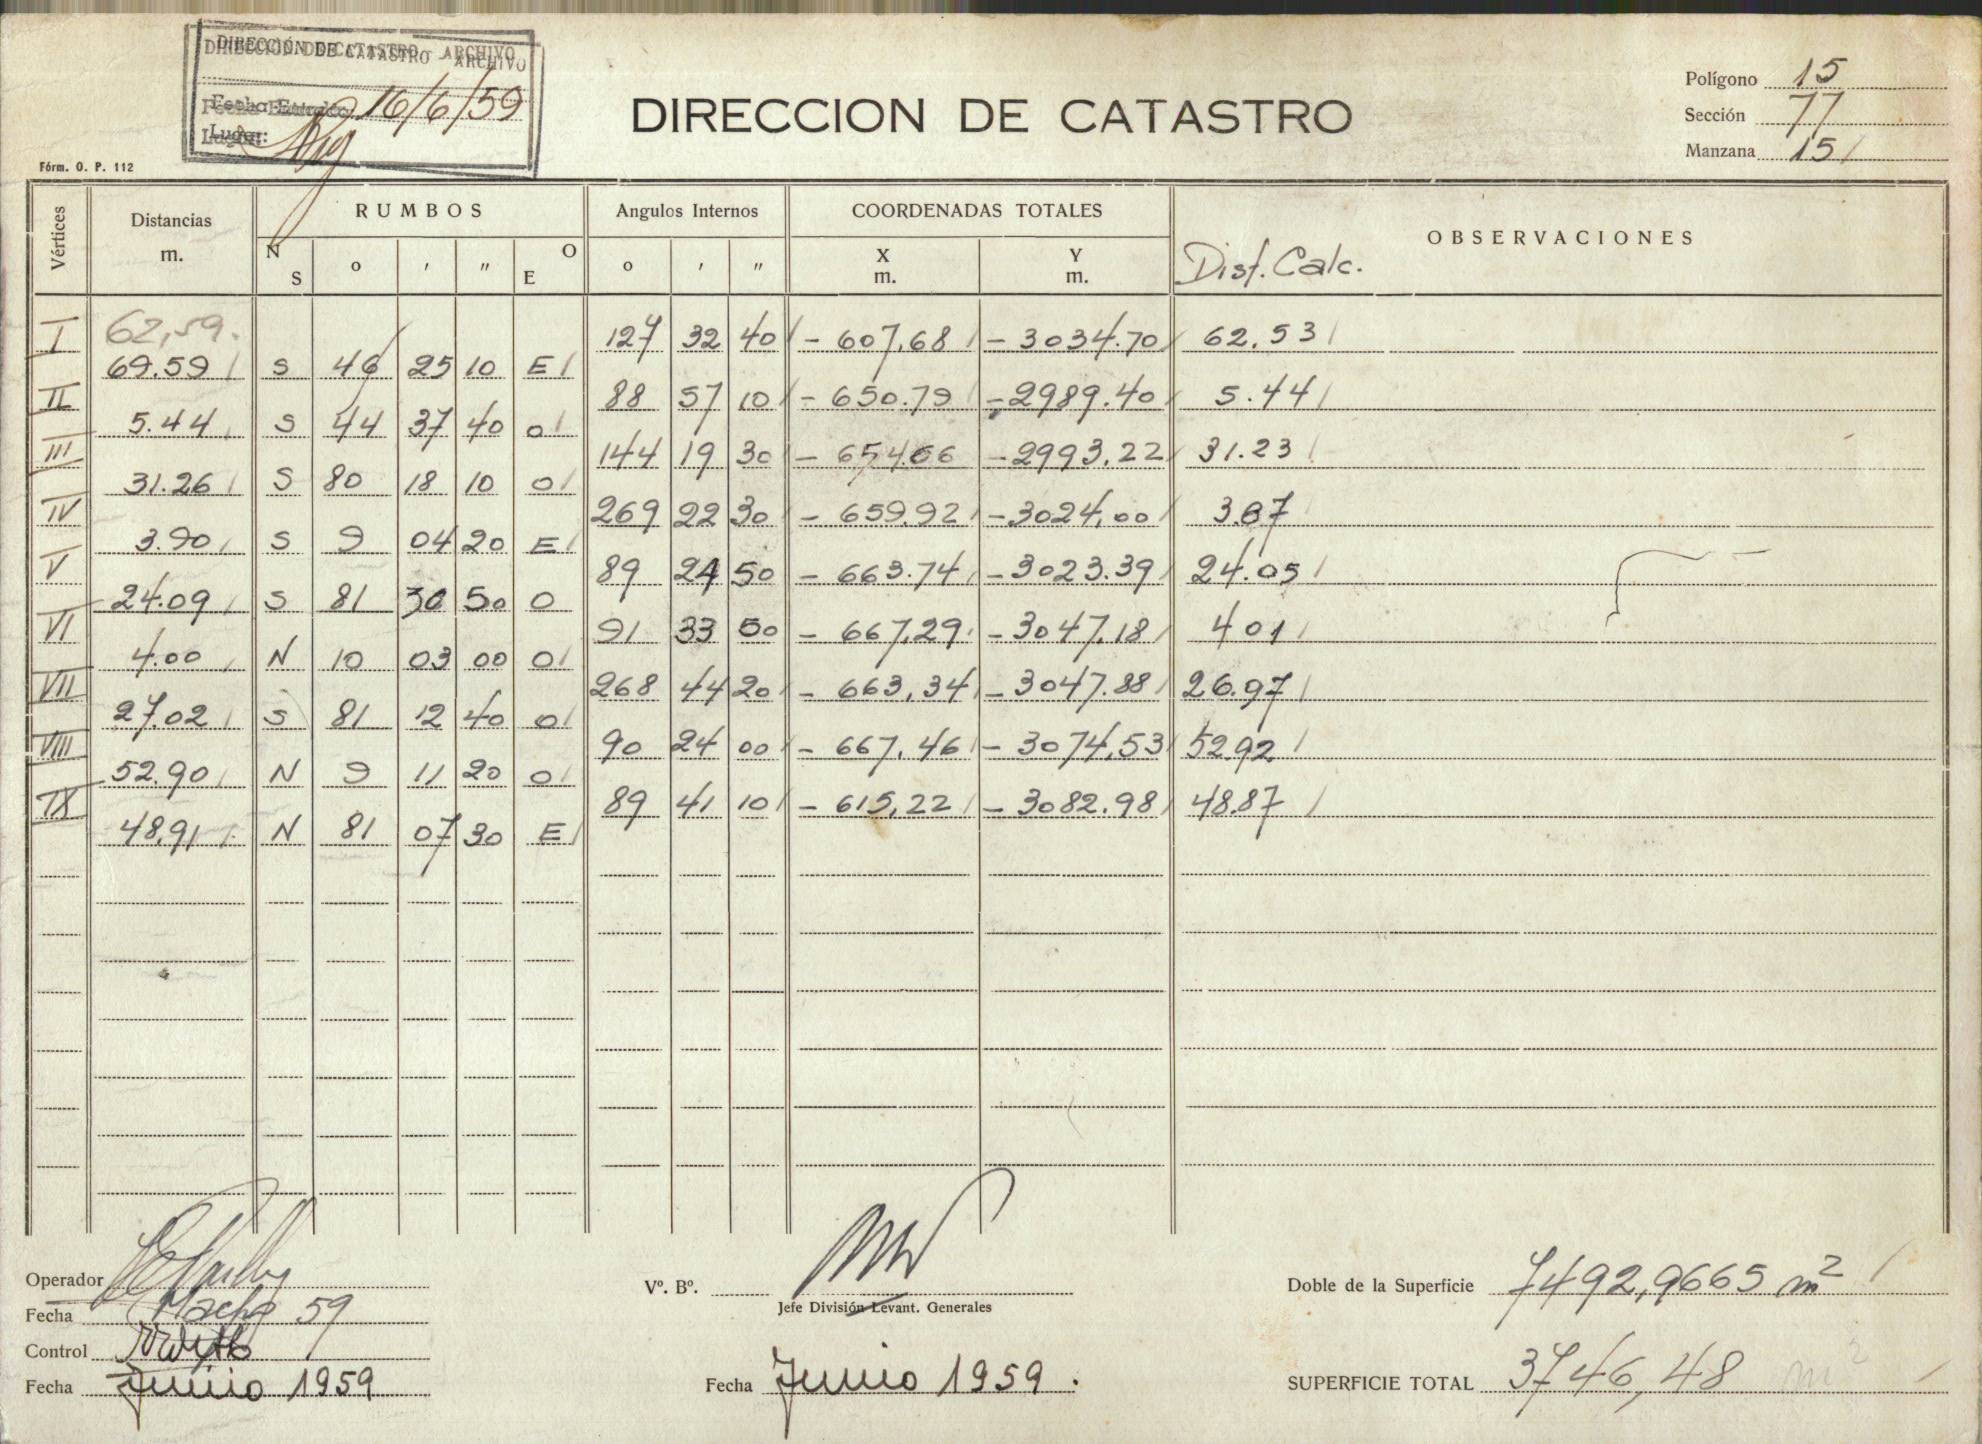 DIRECCIÓN DE CATASTRO - ARCHIVO
Fecha Entrada 16/6/59
Lugar:
Fórm. O. P. 112
DIRECCION DE CATASTRO
Polígono 15
Sección 77
Manzana 15
Vértices Distancias m. RUMBOS Angulos Internos COORDENADAS TOTALES OBSERVACIONES
N S o ' " O E o ' " X m. Y m. Dist. Calc.
I 62,59. 127 32 40 - 607,68 - 3034.70 62.53
69.59 S 46 25 10 E
II 88 57 10 - 650.79 - 2989.40 5.44
5.44 S 44 37 40 O
III 144 19 30 - 654.66 - 2993.22 31.23
31.26 S 80 18 10 O
IV 269 22 30 - 659.92 - 3024,00 3.87
3.90 S 9 04 20 E
V 89 24 50 - 663.74 - 3023.39 24.05
24.09 S 81 30 50 O
VI 91 33 50 - 667,29 - 3047.18 4 01
4.00 N 10 03 00 O
VII 268 44 20 - 663,34 - 3047.88 26.97
27.02 S 81 12 40 O
VIII 90 24 00 - 667,46 - 3074,53 52.92
52.90 N 9 11 20 O
IX 89 41 10 - 615,22 - 3082.98 48.87
48,91 N 81 07 30 E
Operador
Fecha Marzo 59
Control
Fecha Junio 1959
Vº. Bº.
Jefe División Levant. Generales
Fecha Junio 1959.
Doble de la Superficie 7492,9665 m²
SUPERFICIE TOTAL 3746,48 m²